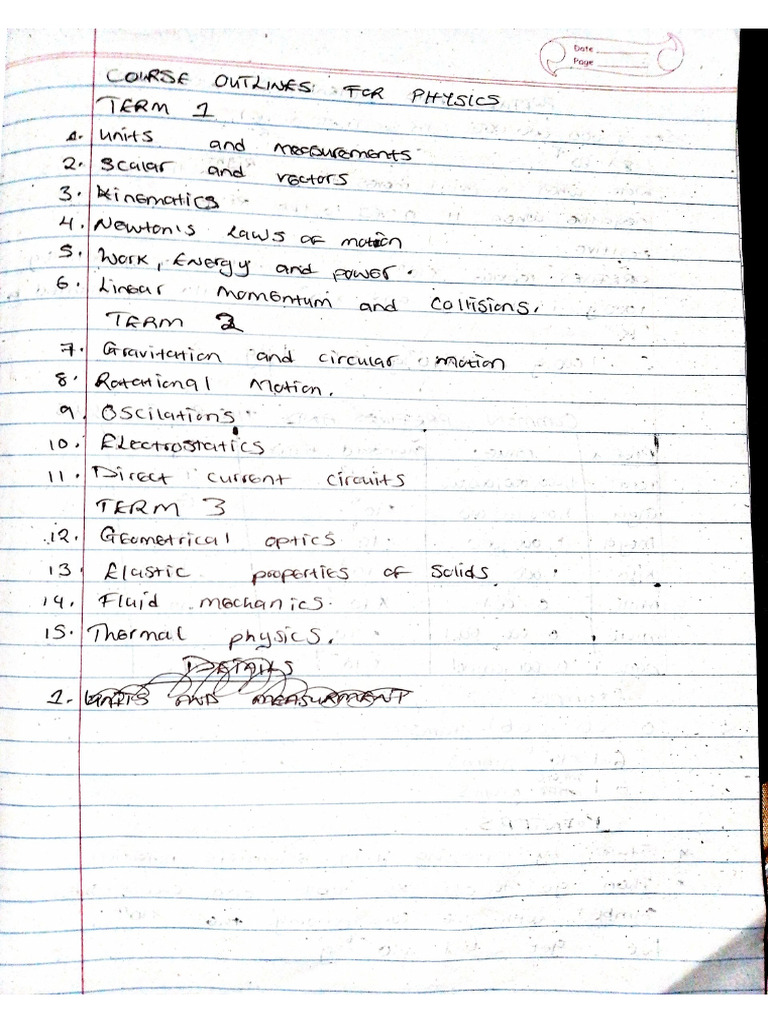 Date
Page
COURSE OUTLINES FOR PHYSICS
TERM 1
1. Units and measurements
2. Scalar and vectors
3. Kinematics
4. Newton's laws of motion
5. Work, Energy and power.
6. Linear momentum and Collisions.
TERM 2
7. Gravitation and circular motion
8. Rotational Motion.
9. Oscilations
10. Electrostatics
11. Direct current circuits
TERM 3
12. Geometrical optics
13. Elastic properties of Solids
14. Fluid mechanics.
15. Thermal physics.
DETAILS
1. UNITS AND MEASUREMENT